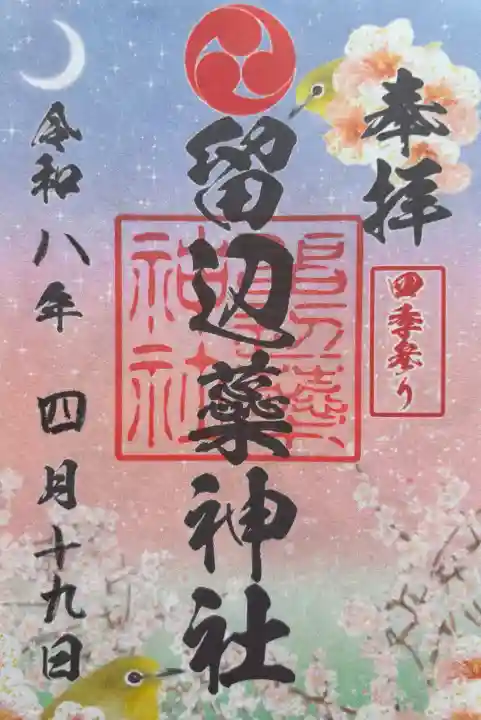 奉拝
四季参り
留辺蘂神社
令和八年 四月十九日